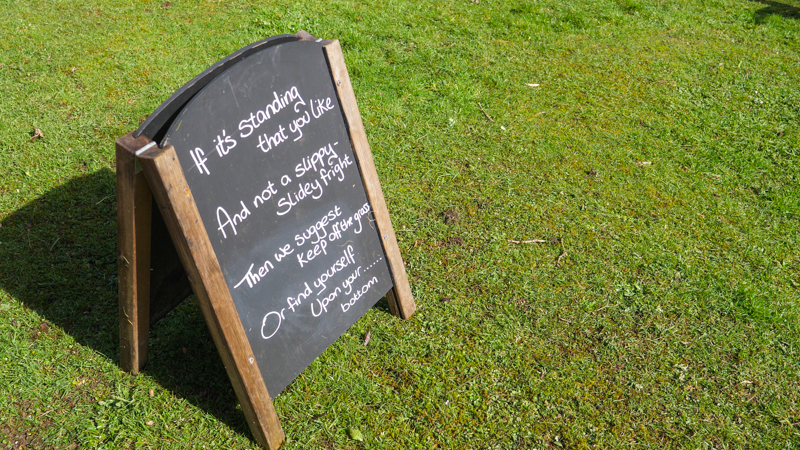 If it's standing
that you like
And not a slippy-
Slidey fright
Then we suggest
keep off the grass
Or find yourself
Upon your......
bottom